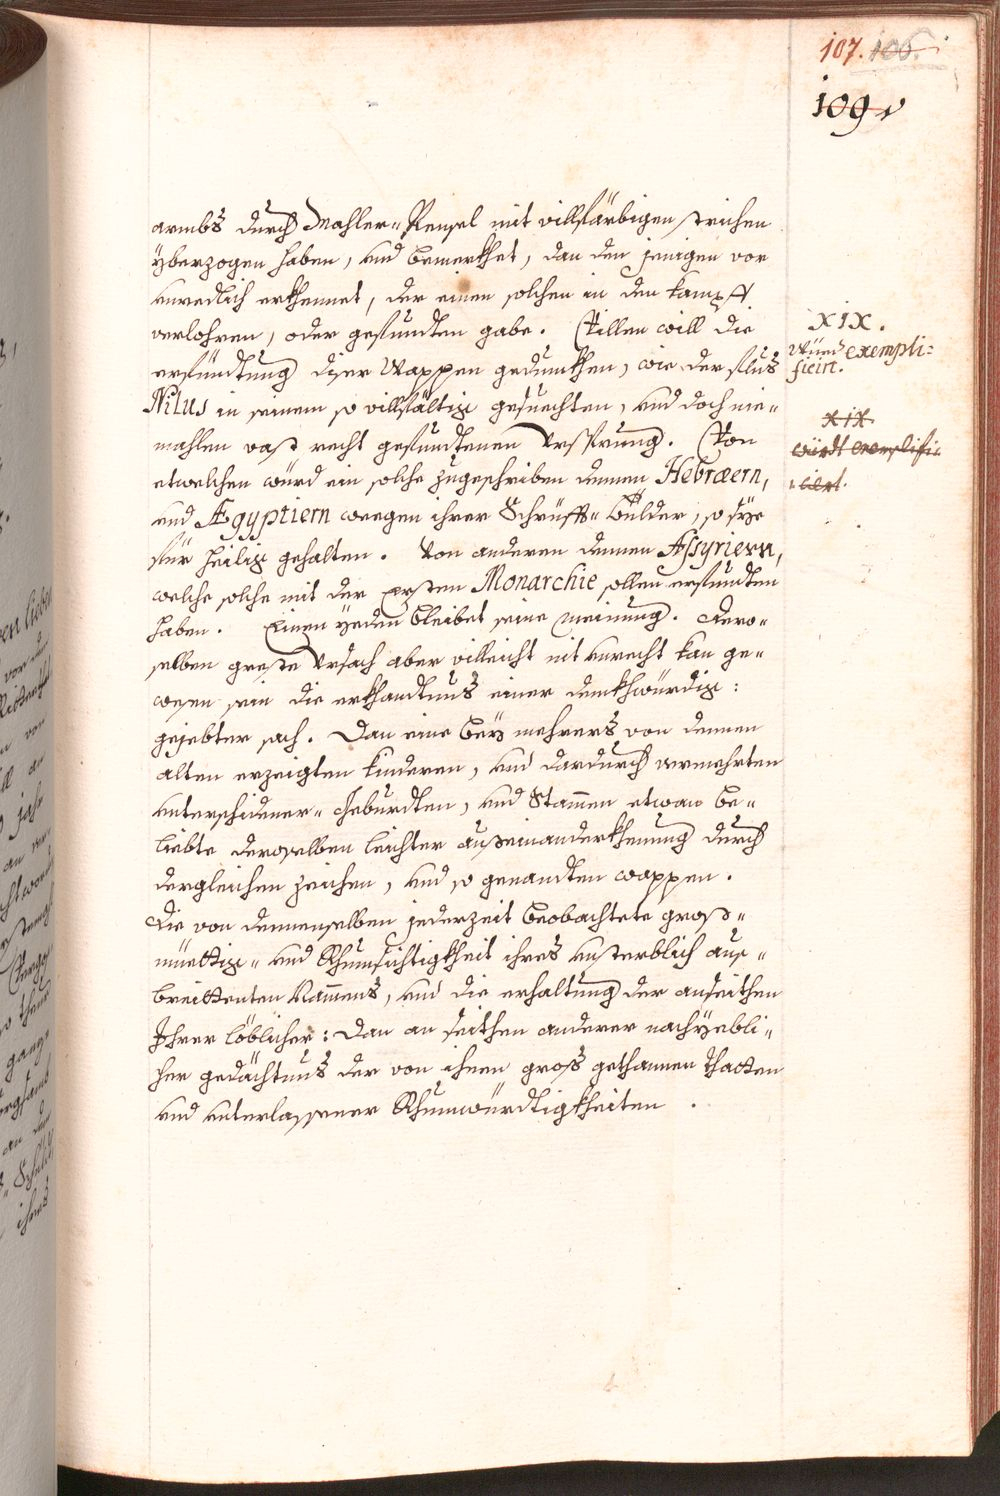 107. 106.
109
armbs durch Mahler-Pensel mit villfärbigen strichen
yberzogen haben, und bemerkhet, dan den jenigen vor
unredlich erkhennet, der einen solchen in den kampff
verlohren, oder gefundten gabe. Villen will die
XIX.
Würd exempli-
ficirt.
erfündtung diser Wappen gedunkhen, wie der flus
Nilus in seinem so villfältig gesuechten, und doch nie-
mahlen vast recht gefundtenen Ursprung. Von
XIX
würdt exemplifi-
cirt.
etwelchen würd ein solche zugeschriben dennen Hebræern,
und Ægyptiern weegen ihrer Schrüfft-Bülder, so sye
für heilig gehalten. Von anderen dennen Assyriern,
welche solche mit der Ersten Monarchie sollen erfundten
haben. Einen yeden bleibet seine meinung. Dero-
selben greste Ursach aber villeicht nit unrecht kan ge-
wesen sein die erkhandtnus einer denkhwürdig:
geyebter sach. Dan eine bey mehrers von dennen
alten erzeigten kinderen, und dardurch vermehrten
unterschidener-Geburdten, und Stammen etwan be-
liebte deroselben leichter auseinanderkhennung durch
dergleichen zeichen, und so genandten wappen.
Die von dennenselben jederzeit beobachtete gros-
müettig- und Rhumsichtigkheit ihres unsterblich aus-
breittenten Nammens, und die erhaltung der anseithen
Ihrer löblicher: Dan an seithen anderer nachyebli-
her gedächtnus der von ihnen gros gethannen thatten
und unterlassener Rhumwürdtigkheiten.